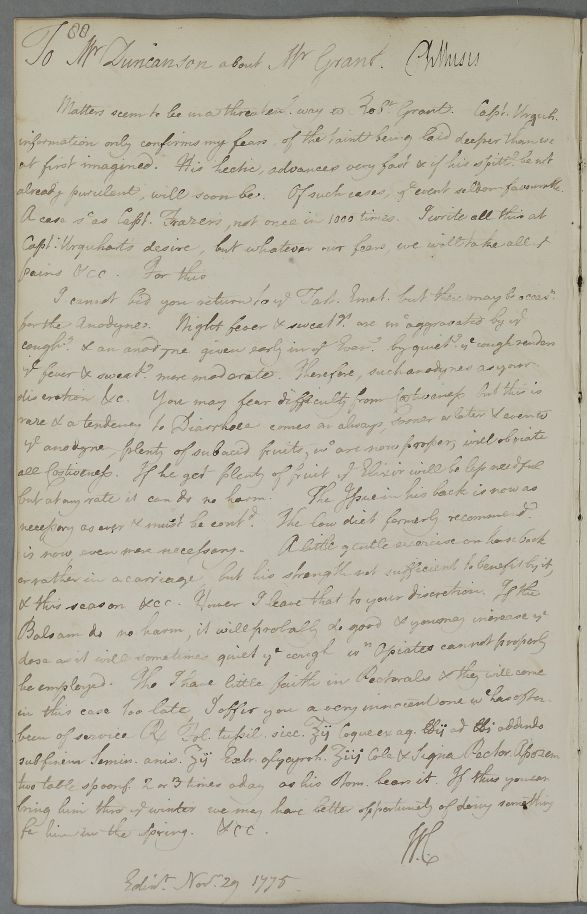 88
To Mr Duncanson about Mr Grant. Phthisis
Matters seem to be in a threaten.g way w. Robt Grant. Capt. Urquh.
information only confirms my fears, of the taint being laid deeper than we
at first imagined. His hectic, advances very fast & if his spitt.g be not
already purulent, will soon be. Of such cases, ye event seldom favourable.
A case s. as Capt. Frazers, not once in 1000 times. I write all this at
Capt. Urquharts desire, but whatever our fears, we will take all
pains &cc. For this
I cannot bid you return to ye Tart. Emet. but there may be occasn
for the Anodynes. Night fever & sweatgs are mh aggravated by ye
coughg & an anodyne given early in ye Eveng by quietg ye cough renders
ye fever & sweatg more moderate. Therefore, such anodynes as your
discretion &c. You may fear difficulty from Costiveness but this is
rare & a tendency to Diarrhoea comes on always, sooner or later & even wt
ye anodyne, plenty of subacid fruits, wh are now proper, will obviate
all Costiveness. If he get plenty of fruit ye Elixir will be less needful
but at any rate it can do no harm. The Issue in his back is now as
necessary as ever & must be contd. The low diet formerly recommend.
is now even more necessary. A little gentle exercise on horseback
or rather in a carriage, but his strength not sufficient to benefit by it,
& this season &cc. However I leave that to your discretion. If the
Balsam do no harm, it will probably do good & you may increase ye
dose as it will sometimes quiet ye cough wn Opiates cannot properly
be employed. Tho I have little faith in Pectorals & they will come
in this case too late I offer you a very innocent one wh has often
been of service Rx Fol. tussil. sicc. ʒij Coque ex aq. ad addendo
sub finem Semin. anis. ʒij Extr. glycyrrh. ʒiij Cola & Signa Pector. Apozem
two table spoonf. 2 or 3 times a day as his Stom. bears it. If thus you can
bring him thro ye winter we may have better opportunity of doing something
for him in the spring. &cc.
WC
Edinr. Novr. 29 1775.